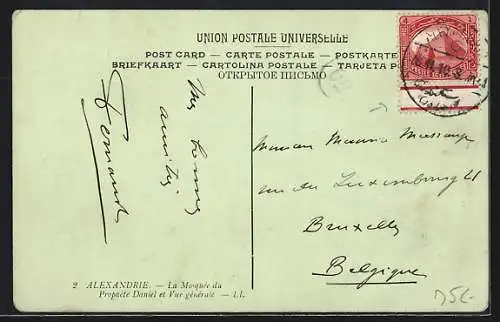 UNION POSTALE UNIVERSELLE
POST CARD – CARTE POSTALE – POSTKARTE
BRIEFKAART – CARTOLINA POSTALE – TARJETA P
ОТКРЫТОЕ ПИСЬМО
Mes bonnes
amitiés
Fernand
Maurice
rue du Luxembourg 41
Bruxelles
Belgique
2 ALEXANDRIE. — La Mosquée du
Prophète Daniel et Vue générale — LL.